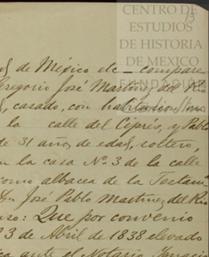 CENTRO DE
ESTUDIOS
DE HISTORIA
DE MEXICO
13
de México etc. compare
Gregorio José Martínez del R
casado, con habitacion
la calle del Ciprés, y Pablo
de 31 años de edad, soltero,
la casa No. 3 de la calle
como albacea de la Testam
Dn José Pablo Martínez del Rio
so: Que por convenio
23 de Abril de 1838 elevado
ante el Notario Ignacio